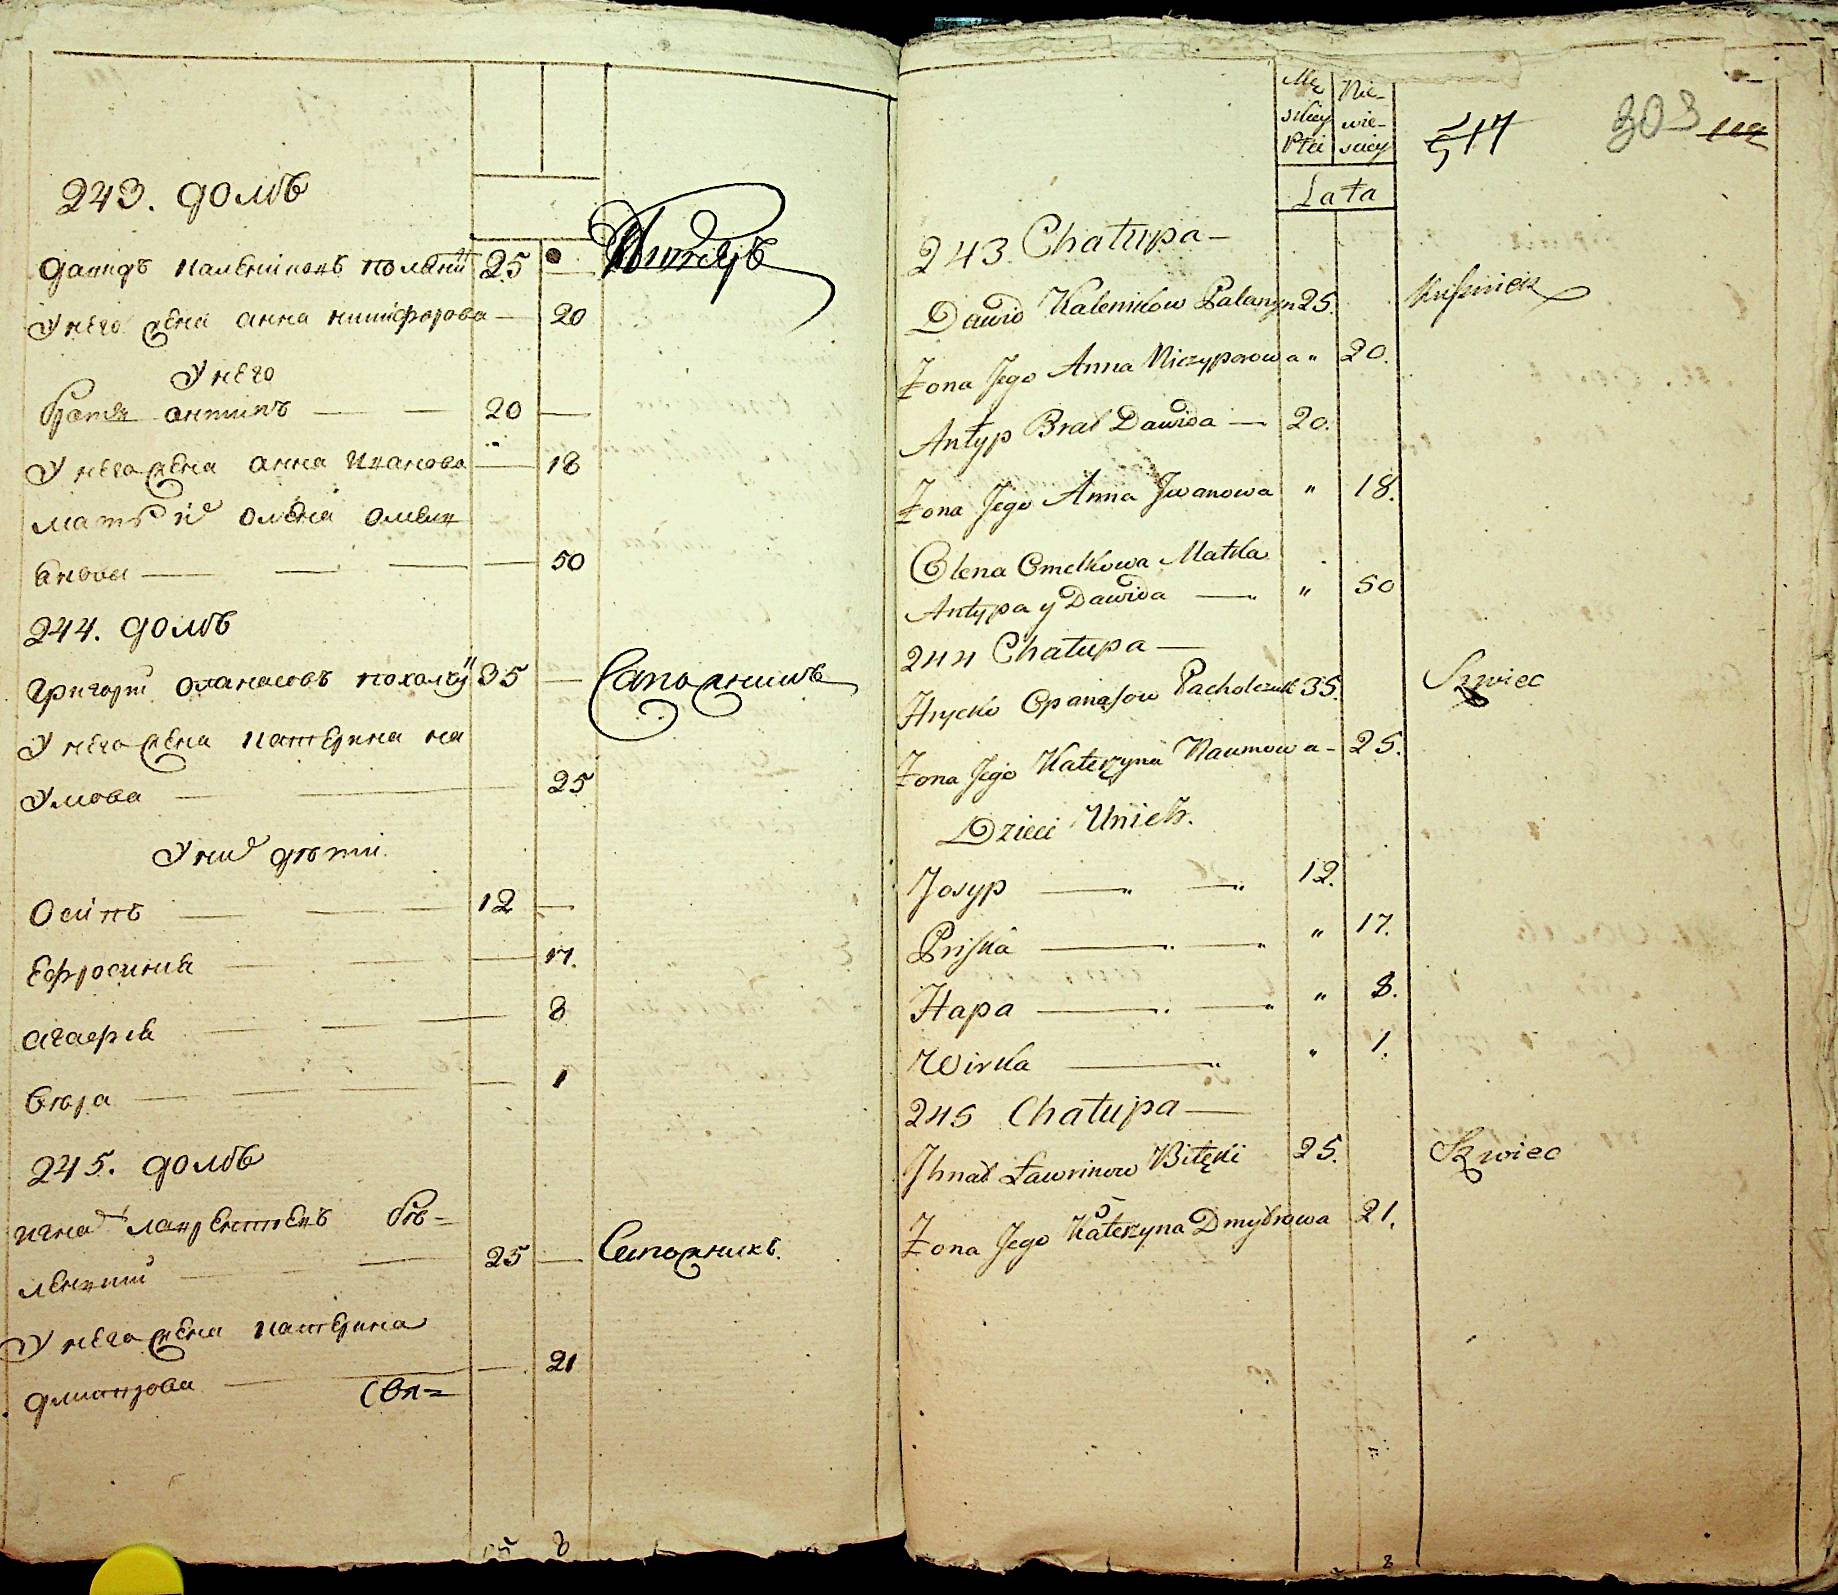 243. домъ
давидъ каленіковъ
25
У него жена анна никифорова 20
У него
братъ антипъ 20
У него жена анна иванова 18
мать их олена омел
кова 50
244. домъ
григорій опанасовъ 35 Сапожникъ
У него жена катерина на
умова 25
У них дѣти
Осипъ 12
Ефросинія 17.
агафія 8
вѣра 1
245. домъ
игнат лаврентіевъ бѣ=
25 Сапожникъ.
У него жена катерина
дмитрова 21
Mę Nie-
skiey wie-
Płci sciey
517 303
Lata
243 Chałupa
Dawid Kalenikow 25. Kuśnierz
Żona Jego Anna Niczyporowa „ 20.
Antyp Brat Dawida 20.
Żona Jego Anna Jwanowa „ 18.
Olena Omelkowa Matka
Antypa y Dawida „ 50
244 Chałupa
Hrycko Opanasow Pacholczuk 35. Szwiec
Żona Jego Katerzyna Naumowa 25.
Dzieci Unich.
Josyp 12.
Priska „ 17.
Hapa „ 8.
Wirka „ 1.
245 Chałupa
Jhnat Ławrinow 25. Szwiec
Żona Jego Katerzyna Dmytrowa 21.